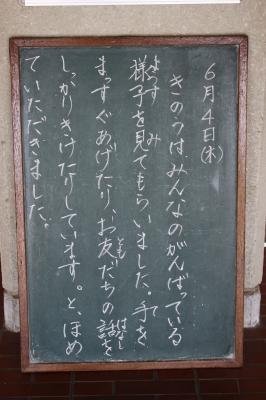 6月4日(木)
きのうは、みんなのがんばっている
様子を見てもらいました。手を
まっすぐあげたり、お友だちの話を
しっかりきけたりしています。と、ほめ
ていただきました。
ようす
み
て
とも
はなし